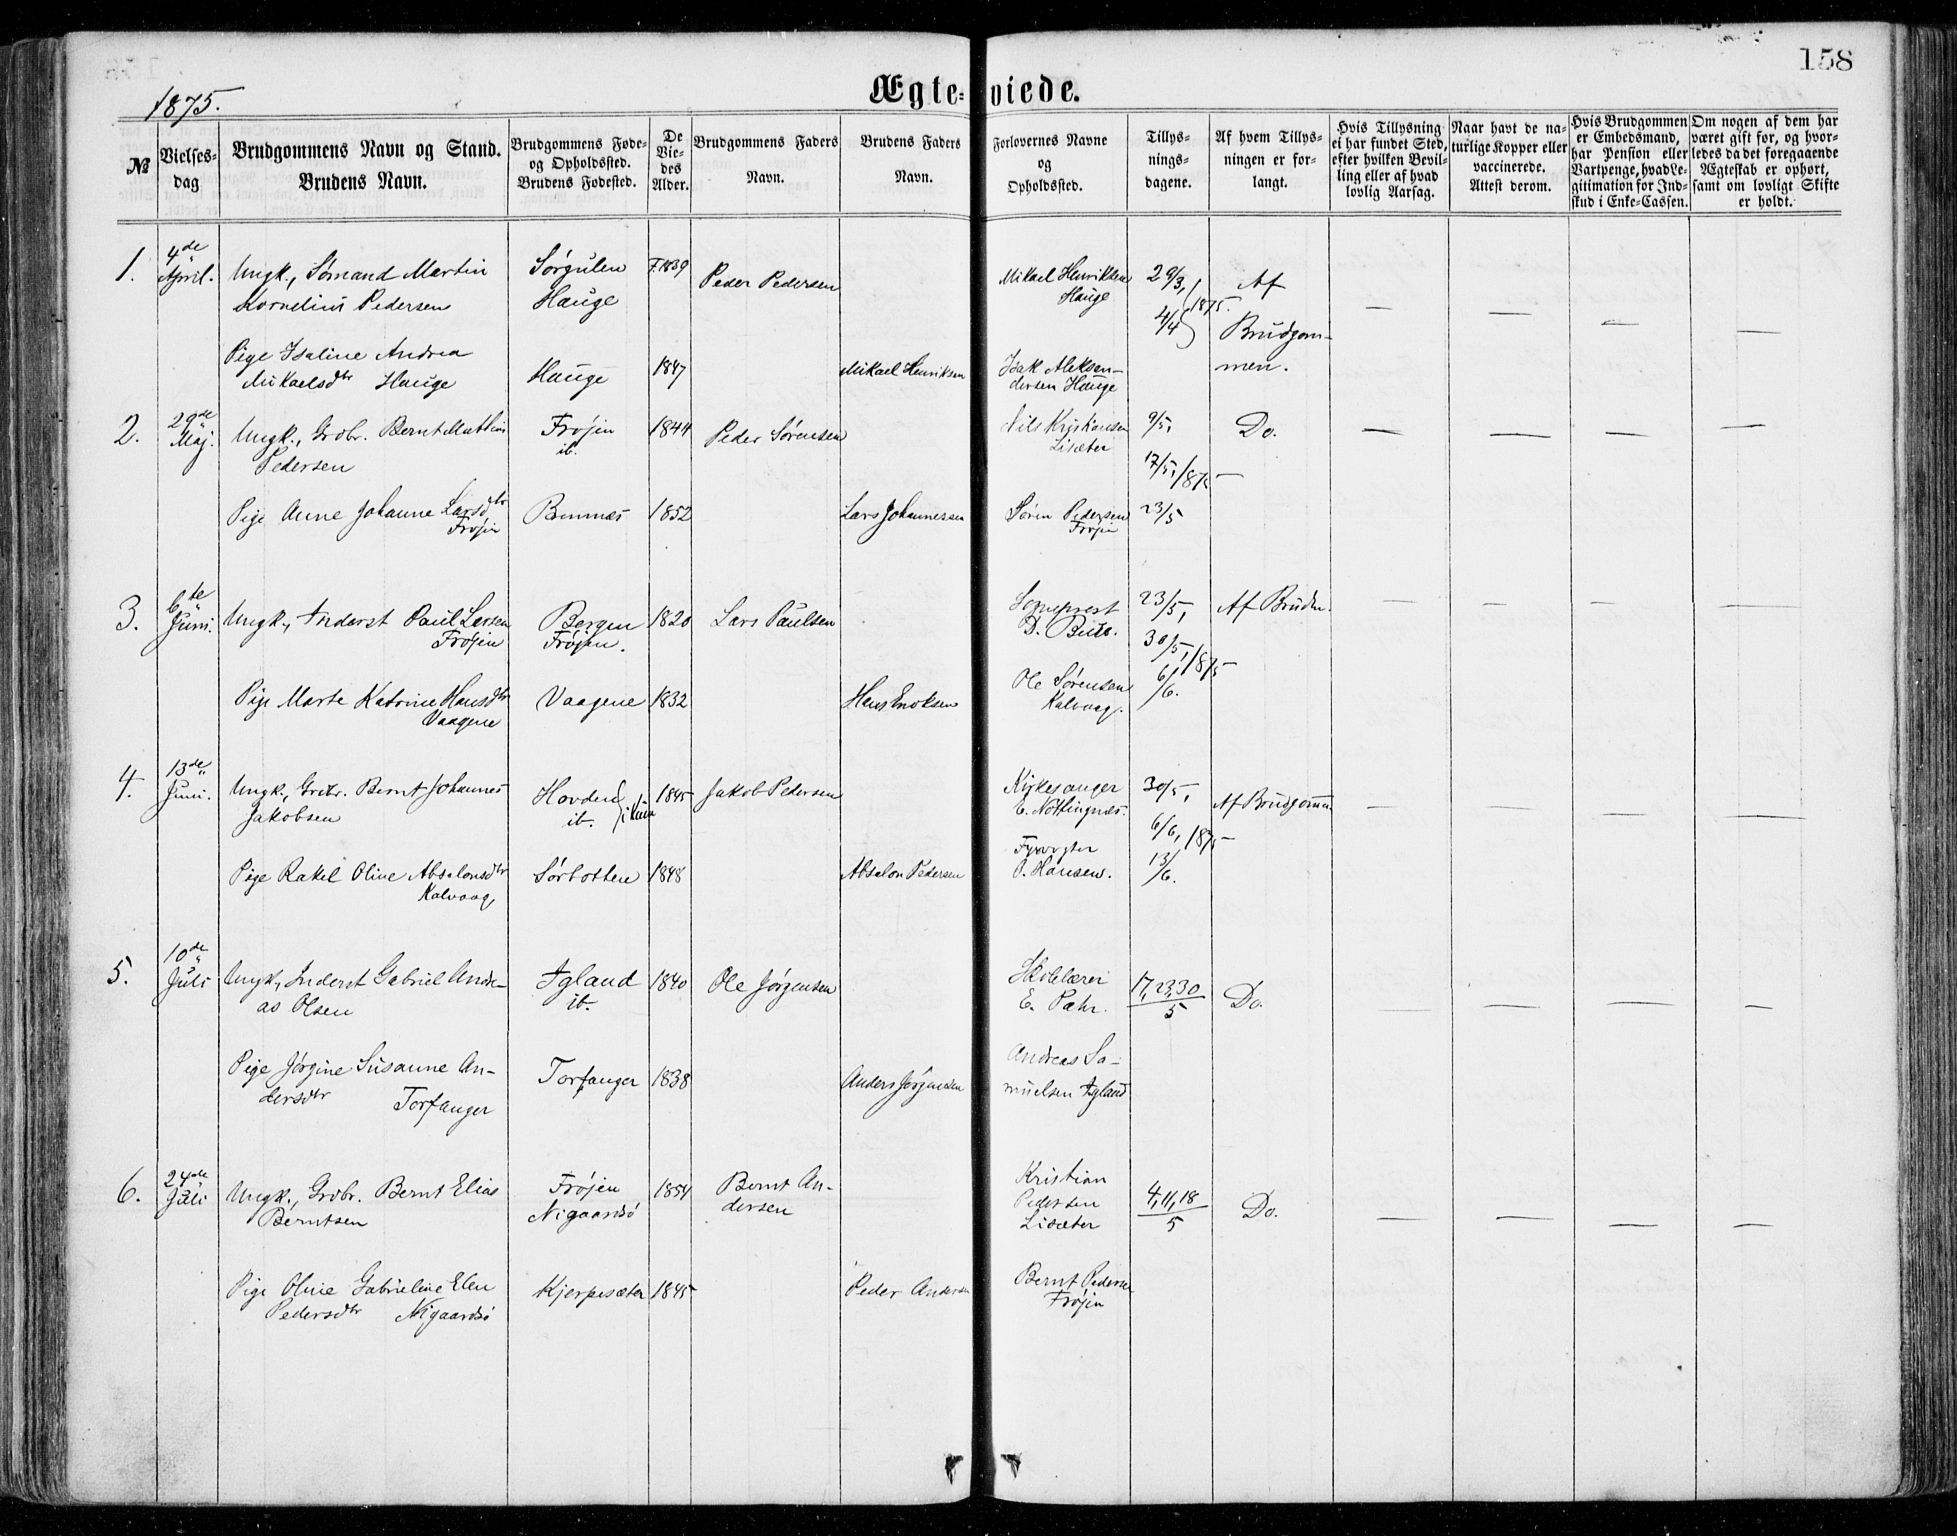 158
1875.
Ægte-viede.
№
Vielses-
dag
Brudgommens Navn og Stand.
Brudens Navn.
Brudgommens Føde-
og Opholdssted.
Brudens Fødested.
De
Vie-
des
Alder.
Brudgommens Faders
Navn.
Brudens Faders
Navn.
Forlovernes Navne
og
Opholdssted.
Tillys-
nings-
dagene.
Af hvem Tillys-
ningen er for-
langt.
Hvis Tillysning
ei har fundet Sted,
efter hvilken Bevil-
ling eller af hvad
lovlig Aarsag.
Naar havt de na-
turlige Kopper eller
vaccinerede.
Attest derom.
Hvis Brudgommen
er Embedsmand,
har Pension eller
Vartpenge, hvad Le-
gitimation for Ind-
skud i Enke-Cassen.
Om nogen af dem har
været gift før, og hvor-
ledes da det foregaaende
Ægteskab er ophørt,
samt om lovligt Skifte
er holdt.
1.
4de
April.
Ungk., Sømand Martin
Kornelius Pedersen
Sørgulen
Hauge
F. 1839
Peder Pedersen
Mikael Henriksen
Hauge
29/3,
4/4
1875.
Af
Brudgom-
men.
Pige Isaline Andrea
Mikaelsdtr Hauge
Hauge
1847
Mikael Henriksen
Isak Aleksan-
dersen Hauge
2.
29de
Maj.
Ungk., Grdbr. Bernt Mathias
Pedersen
Frøjen
ib.
1844
Peder Sørensen
Nils Kristiansen
Lisæter
9/5,
17/5, 1875
23/5
Do.
Pige Anne Johanne Larsdtr
Frøjen
Bremnes
1852
Lars Johannessen
Søren Pedersen
Frøjen
3.
6te
Juni.
Ungk., Inderst Paul Larsen
Frøjen
Bergen
Frøjen.
1820
Lars Paulsen
Sogneprest
D. Buto.
23/5,
30/5, 1875
6/6.
Af Bruden.
Pige Marte Katrine Hansdtr
Vaagene
Vaagene
1832
Hans Enoksen
Ole Sørensen
Kalvaag.
4.
13de
Juni.
Ungk., Grdbr. Bernt Johannes
Jakobsen
Hovden
ib. i Kinn
1845
Jakob Pedersen
Kirkesanger
E. Nøttingnæs.
30/5,
6/6, 1875
13/6.
Af Brudgommen
Pige Rakel Oline Absalonsdtr
Kalvaag
Sørbotten
1848
Absalon Pedersen
Fyrvogter
O. Hansen.
5.
10de
Juli
Ungk., Inderst Gabriel Andre-
as Olsen
Igland
ib.
1840
Ole Jørgensen
Skolelærer
E. Pæhr.
17, 23, 30
5
Do.
Pige Jørgine Susanne An-
dersdtr Torfanger
Torfanger
1838
Anders Jørgensen
Andreas Sa-
muelsen Igland
6.
24de
Juli
Ungk., Grdbr. Bernt Elias
Berntsen
Frøjen
Nigaardsø
1854
Bernt An-
dersen
Kristian
Pedersen
Lisæter
4, 11, 18
5
Do.
Pige Oline Gabrieline Elen
Pedersdtr Nigaardsø
Kjerpesæter
1845
Peder Andersen
Bernt Pedersen
Frøjen